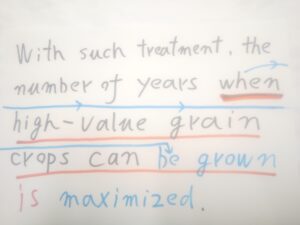 With such treatment, the
number of years when
high-value grain
crops can be grown
is maximized.